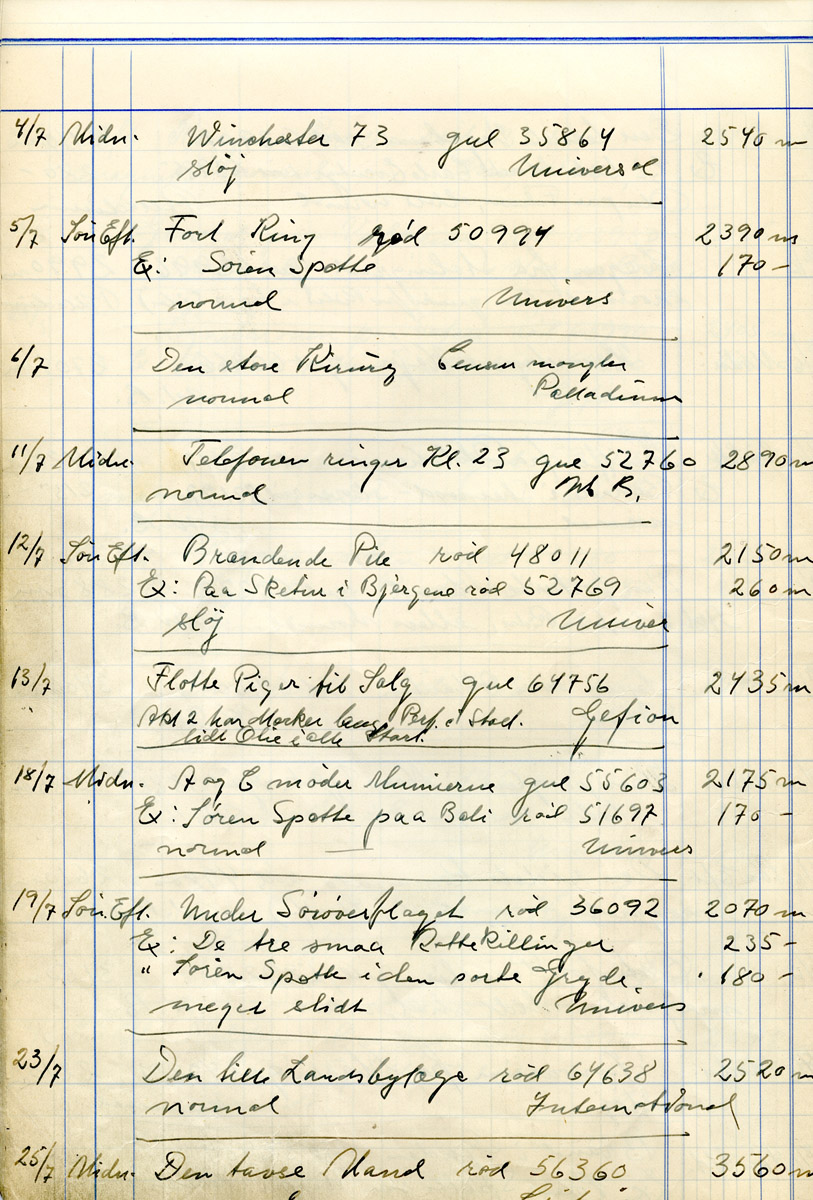 4/7 Midn. Winchester 73 gul 35864 2540 m
sløj Universal
5/7 Søn Eft. Fort Ring rød 50994 2390 m
Ex: Søren Spætte 170 -
normal Univers
6/7 Den store Kirurg Censur mangler
normal Palladium
11/7 Midn. Telefonen ringer Kl. 23 gul 52760 2890 m
normal
12/7 Søn Eft. Brændende Pile rød 48011 2150 m
Ex: Paa Sketur i Bjergene rød 52769 260 m
sløj Univer
13/7 Flotte Piger til Salg gul 64756 2435 m
Akt 2 har Mærker Perf. i Stød. Gefion
lidt Olie i alle Start.
18/7 Midn. A og C møder Mumierne gul 55603 2175 m
Ex: Søren Spætte paa Bali rød 51697 170 -
normal — Univers
19/7 Søn. Eft. Under Sørøverflaget rød 36092 2070 m
Ex: De tre smaa Kattekillinger 235 -
" Søren Spætte i den sorte Gryde. 180 -
meget slidt Univers
23/7 Den lille Landsbylæge rød 64638 2520 m
normal International
25/7 Midn. Den tavse Mand rød 56360 3560 m